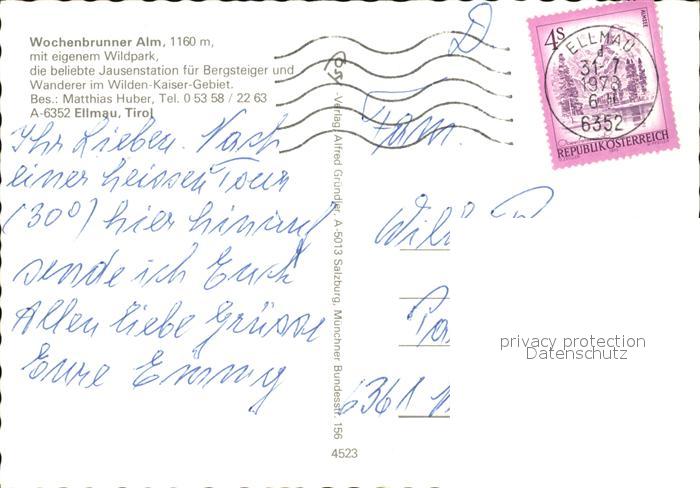 Wochenbrunner Alm, 1160 m,
mit eigenem Wildpark,
die beliebte Jausenstation für Bergsteiger und
Wanderer im Wilden-Kaiser-Gebiet.
Bes.: Matthias Huber, Tel. 0 53 58 / 22 63
A-6352 Ellmau, Tirol
Ihr Lieben. Nach
einer heissen Tour
(30°) hier hinauf
sende ich Euch
Allen liebe Grüsse
Eure
-Verlag Alfred Gründler, A-5013 Salzburg, Münchner Bundesstr. 156
4523
D
4S
ELLMAU
31.-7
6352
REPUBLIK ÖSTERREICH
Fam.
6361
privacy protection
Datenschutz